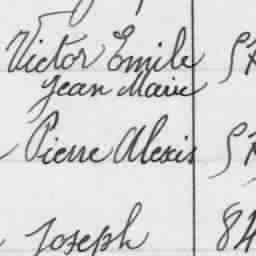 Victor Emile
Jean Marie
Pierre Alexis
Joseph 84